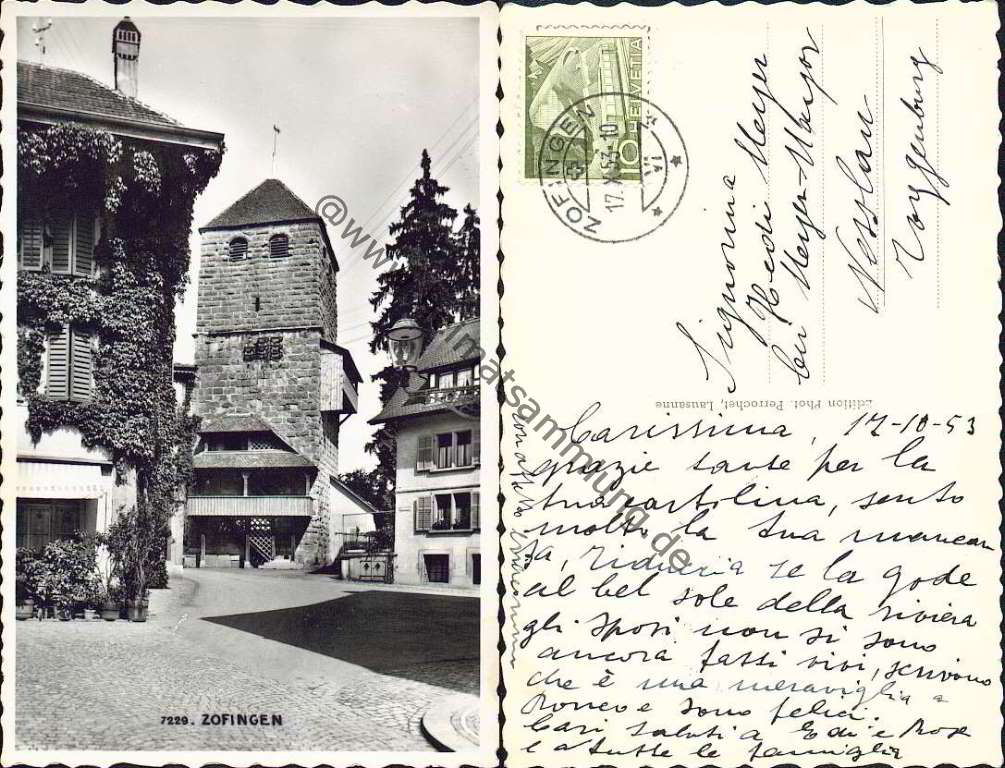 7229. ZOFINGEN
HELVETIA
10
ZOFINGEN
17.X.53-10
VI
Signorina
Hedi Meyer
bei Meyer-Major
Nesslau
Toggenburg
Edition Phot. Perrochet, Lausanne
Carissima, 17-10-53
grazie tante per la
tua cartolina, sento
molto la tua mancan
za, Fiduzia se la gode
al bel sole della riviera
gli sposi non si sono
ancora fatti vivi, scrivono
che è una meraviglia a
Romeo e sono felici.
Cari saluti a Edi e Rose
e a tutte le famiglia